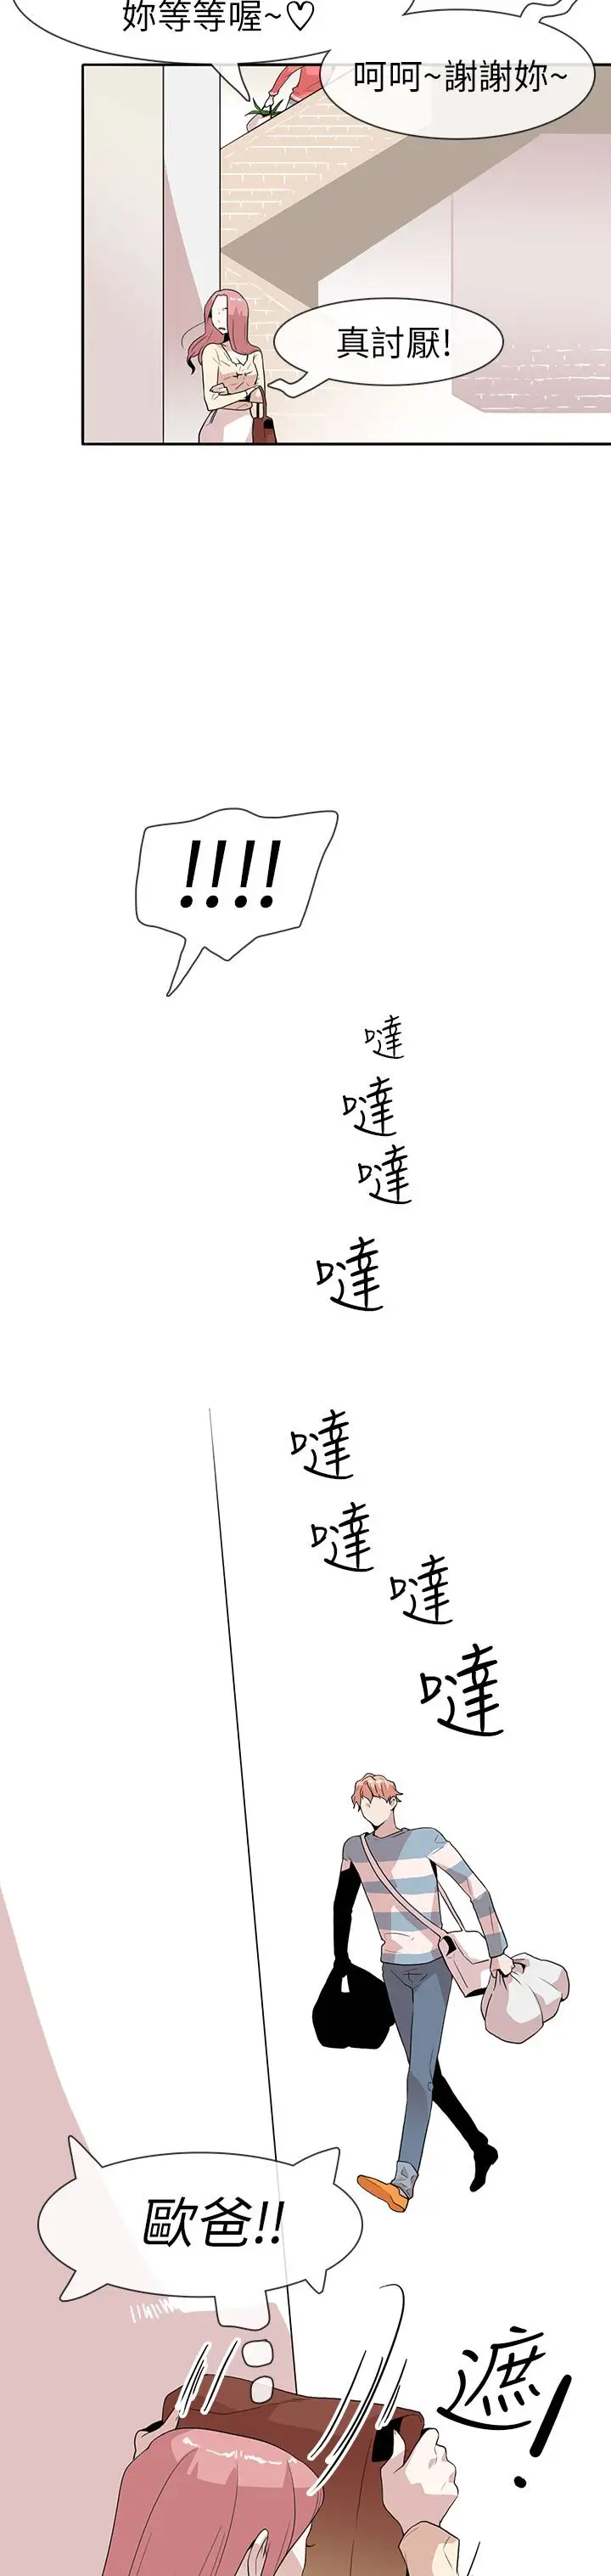 妳等等喔~♡
呵呵~謝謝妳~
真討厭!
!!!!
噠
噠
噠
噠
噠
噠
噠
噠
歐爸!!
遮!